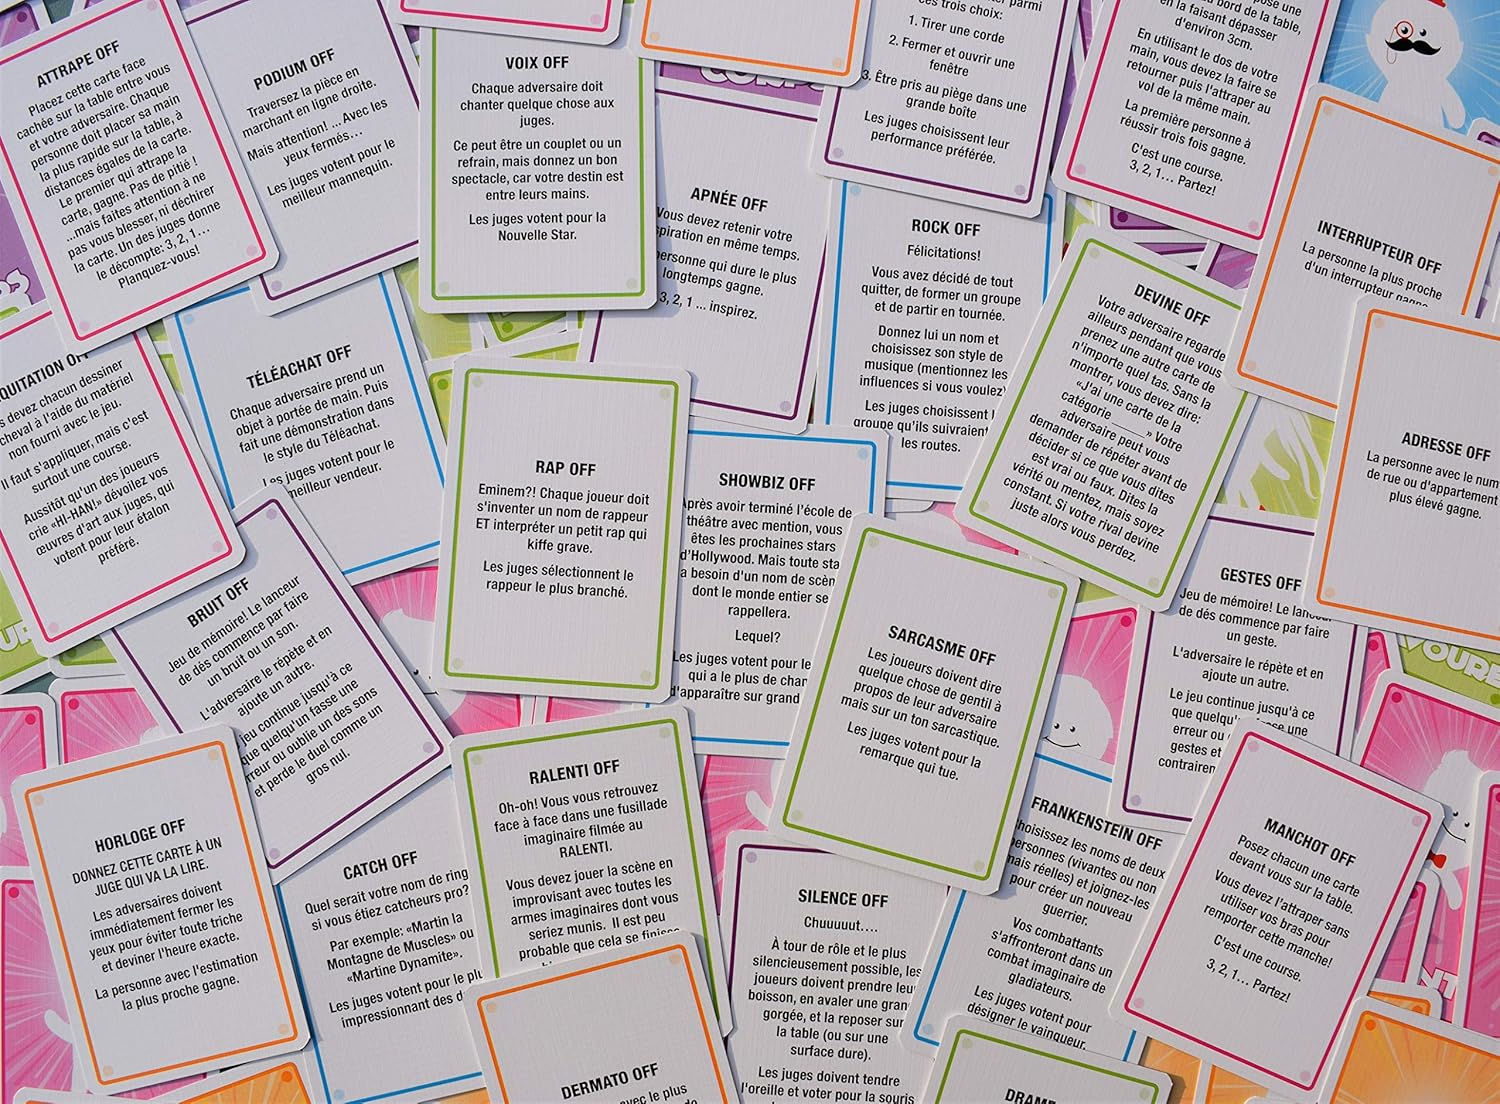 ATTRAPE OFF
Placez cette carte face
cachée sur la table entre vous
et votre adversaire. Chaque
personne doit placer sa main
la plus rapide sur la table, à
distances égales de la carte.
Le premier qui attrape la
carte, gagne. Pas de pitié !
...mais faites attention à ne
pas vous blesser, ni déchirer
la carte. Un des juges donne
le décompte: 3, 2, 1...
Planquez-vous!
PODIUM OFF
Traversez la pièce en
marchant en ligne droite.
Mais attention! ... Avec les
yeux fermés...
Les juges votent pour le
meilleur mannequin.
VOIX OFF
Chaque adversaire doit
chanter quelque chose aux
juges.
Ce peut être un couplet ou un
refrain, mais donnez un bon
spectacle, car votre destin est
entre leurs mains.
Les juges votent pour la
Nouvelle Star.
APNÉE OFF
Vous devez retenir votre
en même temps.
qui dure le plus
longtemps gagne.
3, 2, 1 ... inspirez.
parmi
ces trois choix:
1. Tirer une corde
2. Fermer et ouvrir une
fenêtre
3. Être pris au piège dans une
grande boîte
Les juges choisissent leur
performance préférée.
ROCK OFF
Félicitations!
Vous avez décidé de tout
quitter, de former un groupe
et de partir en tournée.
Donnez lui un nom et
choisissez son style de
musique (mentionnez les
influences si vous voulez)
Les juges choisissent
groupe qu'ils suivraient
les routes.
une
au bord de la table,
en la faisant dépasser
d'environ 3cm.
En utilisant le dos de votre
main, vous devez la faire se
retourner puis l'attraper au
vol de la même main.
La première personne à
réussir trois fois gagne.
C'est une course.
3, 2, 1... Partez!
INTERRUPTEUR OFF
La personne la plus proche
d'un interrupteur gagne
DEVINE OFF
Votre adversaire regarde
ailleurs pendant que vous
prenez une autre carte de
n'importe quel tas. Sans la
montrer, vous devez dire:
«J'ai une carte de la
catégorie_____» Votre
adversaire peut vous
demander de répéter avant de
décider si ce que vous dites
est vrai ou faux. Dites la
vérité ou mentez, mais soyez
constant. Si votre rival devine
juste alors vous perdez.
ADRESSE OFF
La personne avec le
de rue ou d'appartement
plus élevé gagne.
devez chacun dessiner
cheval à l'aide du matériel
non fourni avec le jeu.
Il faut s'appliquer, mais c'est
surtout une course.
Aussitôt qu'un des joueurs
crie «HI-HAN!» dévoilez vos
œuvres d'art aux juges, qui
votent pour leur étalon
préféré.
TÉLÉACHAT OFF
Chaque adversaire prend un
objet à portée de main. Puis
fait une démonstration dans
le style du Téléachat.
Les juges votent pour le
meilleur vendeur.
RAP OFF
Eminem?! Chaque joueur doit
s'inventer un nom de rappeur
ET interpréter un petit rap qui
kiffe grave.
Les juges sélectionnent le
rappeur le plus branché.
SHOWBIZ OFF
Après avoir terminé l'école de
théâtre avec mention, vous
êtes les prochaines stars
d'Hollywood. Mais toute
a besoin d'un nom de
dont le monde entier se
rappellera.
Lequel?
Les juges votent pour le
qui a le plus de
d'apparaître sur grand
SARCASME OFF
Les joueurs doivent dire
quelque chose de gentil à
propos de leur adversaire
mais sur un ton sarcastique.
Les juges votent pour la
remarque qui tue.
GESTES OFF
Jeu de mémoire! Le lanceur
de dés commence par faire
un geste.
L'adversaire le répète et en
ajoute un autre.
Le jeu continue jusqu'à ce
que une
erreur ou
gestes et
BRUIT OFF
Jeu de mémoire! Le lanceur
de dés commence par faire
un bruit ou un son.
L'adversaire le répète et en
ajoute un autre.
jeu continue jusqu'à ce
que quelqu'un fasse une
erreur ou oublie un des sons
et perde le duel comme un
gros nul.
HORLOGE OFF
DONNEZ CETTE CARTE À UN
JUGE QUI VA LA LIRE.
Les adversaires doivent
immédiatement fermer les
yeux pour éviter toute triche
et deviner l'heure exacte.
La personne avec l'estimation
la plus proche gagne.
CATCH OFF
Quel serait votre nom de ring
si vous étiez catcheurs pro?
Par exemple: «Martin la
Montagne de Muscles» ou
«Martine Dynamite».
Les juges votent pour le
impressionnant des
RALENTI OFF
Oh-oh! Vous vous retrouvez
face à face dans une fusillade
imaginaire filmée au
RALENTI.
Vous devez jouer la scène en
improvisant avec toutes les
armes imaginaires dont vous
seriez munis. Il est peu
probable que cela se finisse
SILENCE OFF
Chuuuuut....
À tour de rôle et le plus
silencieusement possible, les
joueurs doivent prendre leur
boisson, en avaler une
gorgée, et la reposer sur
la table (ou sur une
surface dure).
Les juges doivent tendre
l'oreille et voter pour la souris
FRANKENSTEIN OFF
Choisissez les noms de deux
personnes (vivantes ou non
mais réelles) et joignez-les
pour créer un nouveau
guerrier.
Vos combattants
s'affronteront dans un
combat imaginaire de
gladiateurs.
Les juges votent pour
désigner le vainqueur.
MANCHOT OFF
Posez chacun une carte
devant vous sur la table.
Vous devez l'attraper sans
utiliser vos bras pour
remporter cette manche!
C'est une course.
3, 2, 1... Partez!
DERMATO OFF
avec le plus
DRAME